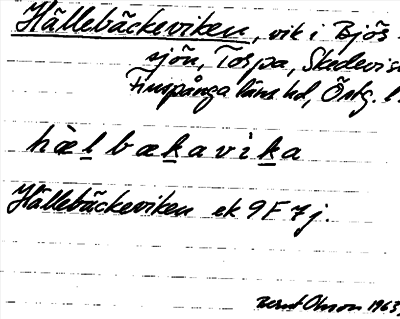 Hällebäckeviken, vik i Bjös
sjön, Torpa, Skedevi s
Finspånga läns hd, Östg. l.
hæl bækavika
Hällebäckeviken ek 9F 7j.
Bernt Olsson 1963